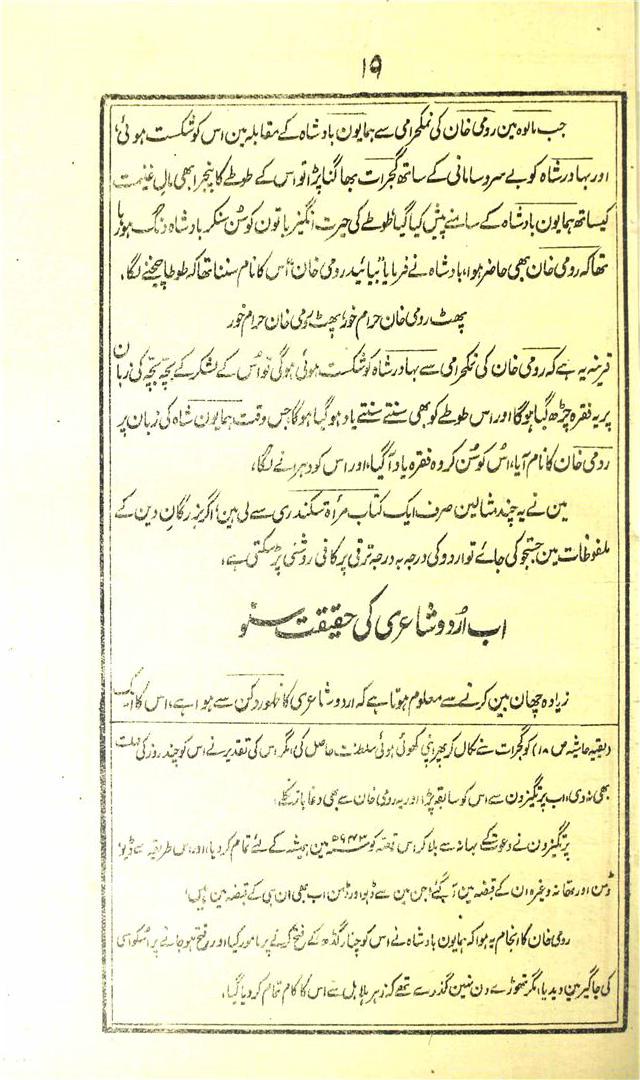 ۱۹
جب مالوہ مین رومی خان کی نمکحرامی سے ہمایون بادشاہ کے مقابلہ مین اس کو شکست ہوئی،
اور بہادر شاہ کو بے سروسامانی کے ساتھ گجرات بھاگنا پڑا تو اس کے طوطے کا پنجرا بھی مال غنیمت
کیساتھ ہمایون بادشاہ کے سامنے پیش کیا گیا، طوطے کی حیرت انگیز باتون کو سُن سنکر بادشاہ دنگ ہو رہا
تھا کہ رومی خان بھی حاضر ہوا، بادشاہ نے فرمایا "بیائید رومی خان" اُس کا نام سننا تھا کہ طوطا چیخنے لگا،
پھٹ رومی خان حرام خور، پھٹ رومی خان حرام خور
قرینہ یہ ہے کہ رومی خان کی نمکحرامی سے بہادر شاہ کو شکست ہوئی ہوگی تو اُس کے لشکر کے بچہ بچہ کی زبان
پر یہ فقرہ چڑھ گیا ہوگا اور اس طوطے کو بھی سنتے سنتے یاد ہو گیا ہوگا، جس وقت ہمایون شاہ کی زبان پر
رومی خان کا نام آیا، اُس کو سُن کر وہ فقرہ یاد آ گیا، اور اس کو دہرانے لگا،
مین نے یہ چند مثالین صرف ایک کتاب مرأة سکندری سے لی ہین، اگر بزرگان دین کے
ملفوظات مین جستجو کی جائے تو اردو کی درجہ بہ درجہ ترقی پر کافی روشنی پڑ سکتی ہے،
اب اُردو شاعری کی حقیقت سنو
زیادہ چھان بین کرنے سے معلوم ہوتا ہے کہ اردو شاعری کا ظہور دکن سے ہوا ہے، اس کا ایک
(بقیہ حاشیہ ص ۱۸) کو گجرات سے نکال کر پھر اپنی کھوئی ہوئی سلطنت حاصل کی، مگر اس کی تقدیر نے اس کو چند روز کی مہلت
بھی نہ دی، اب پرتگیزون سے اس کو سابقہ پڑا، اور یہ رومی خان سے بھی دغا باز نکلے،
پرتگیزون نے دعوت کے بہانہ سے بلا کر اس قصہ کو ۹۴۳ھ مین ہمیشہ کے لئے تمام کر دیا، اور اس طریقہ سے ڈیو،
ڈمن اور تھانہ وغیرہ ان کے قبضہ مین آ گئے، جن مین سے ڈیو اور ڈمن اب بھی ان ہی کے قبضہ مین ہین،
رومی خان کا انجام یہ ہوا کہ ہمایون بادشاہ نے اس کو چنار گڈھ کے فتح کرنے پر مامور کیا اور فتح ہو جانے پر اسکو اسی
کی جاگیر مین دیدیا، مگر تھوڑے دن نہین گذرے تھے کہ زہر ہلاہل سے اس کا کام تمام کر دیا گیا،